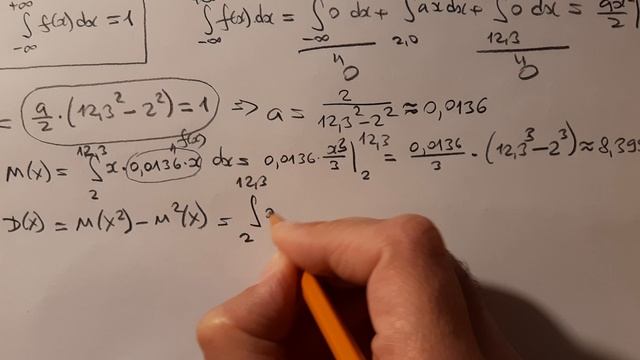 ∫_{-∞}^{+∞} f(x)dx = 1
∫_{-∞}^{+∞} f(x)dx = ∫_{-∞}^{2,0} 0 dx + ∫_{2,0}^{12,3} ax dx + ∫_{12,3} 0 dx = ax²/2
0 0
= a/2 · (12,3² - 2²) = 1 ⇒ a = 2/(12,3² - 2²) ≈ 0,0136
M(x) = ∫_{2}^{12,3} x · 0,0136 · x dx = 0,0136 · x³/3 |_{2}^{12,3} = 0,0136/3 · (12,3³ - 2³) ≈ 8,399
f(x)
D(x) = M(x²) - M²(x) = ∫_{2}^{12,3}